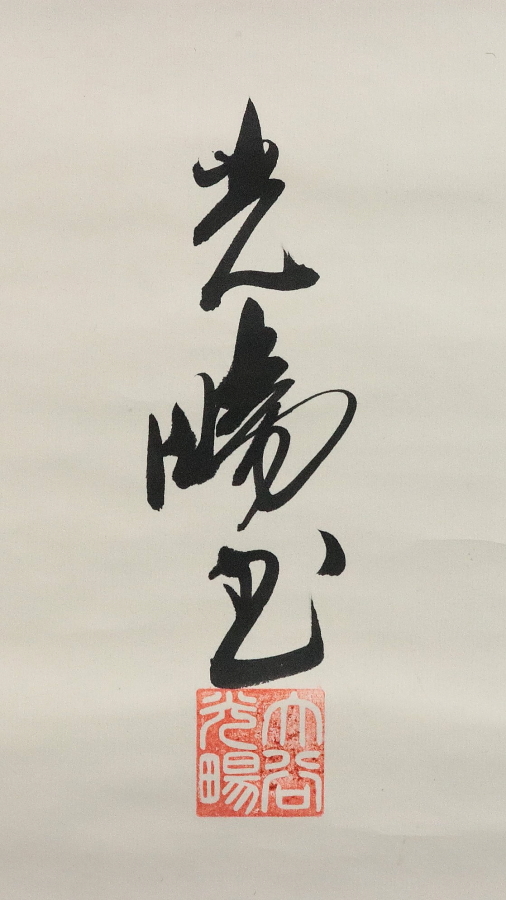 光暢書
大谷
光暢